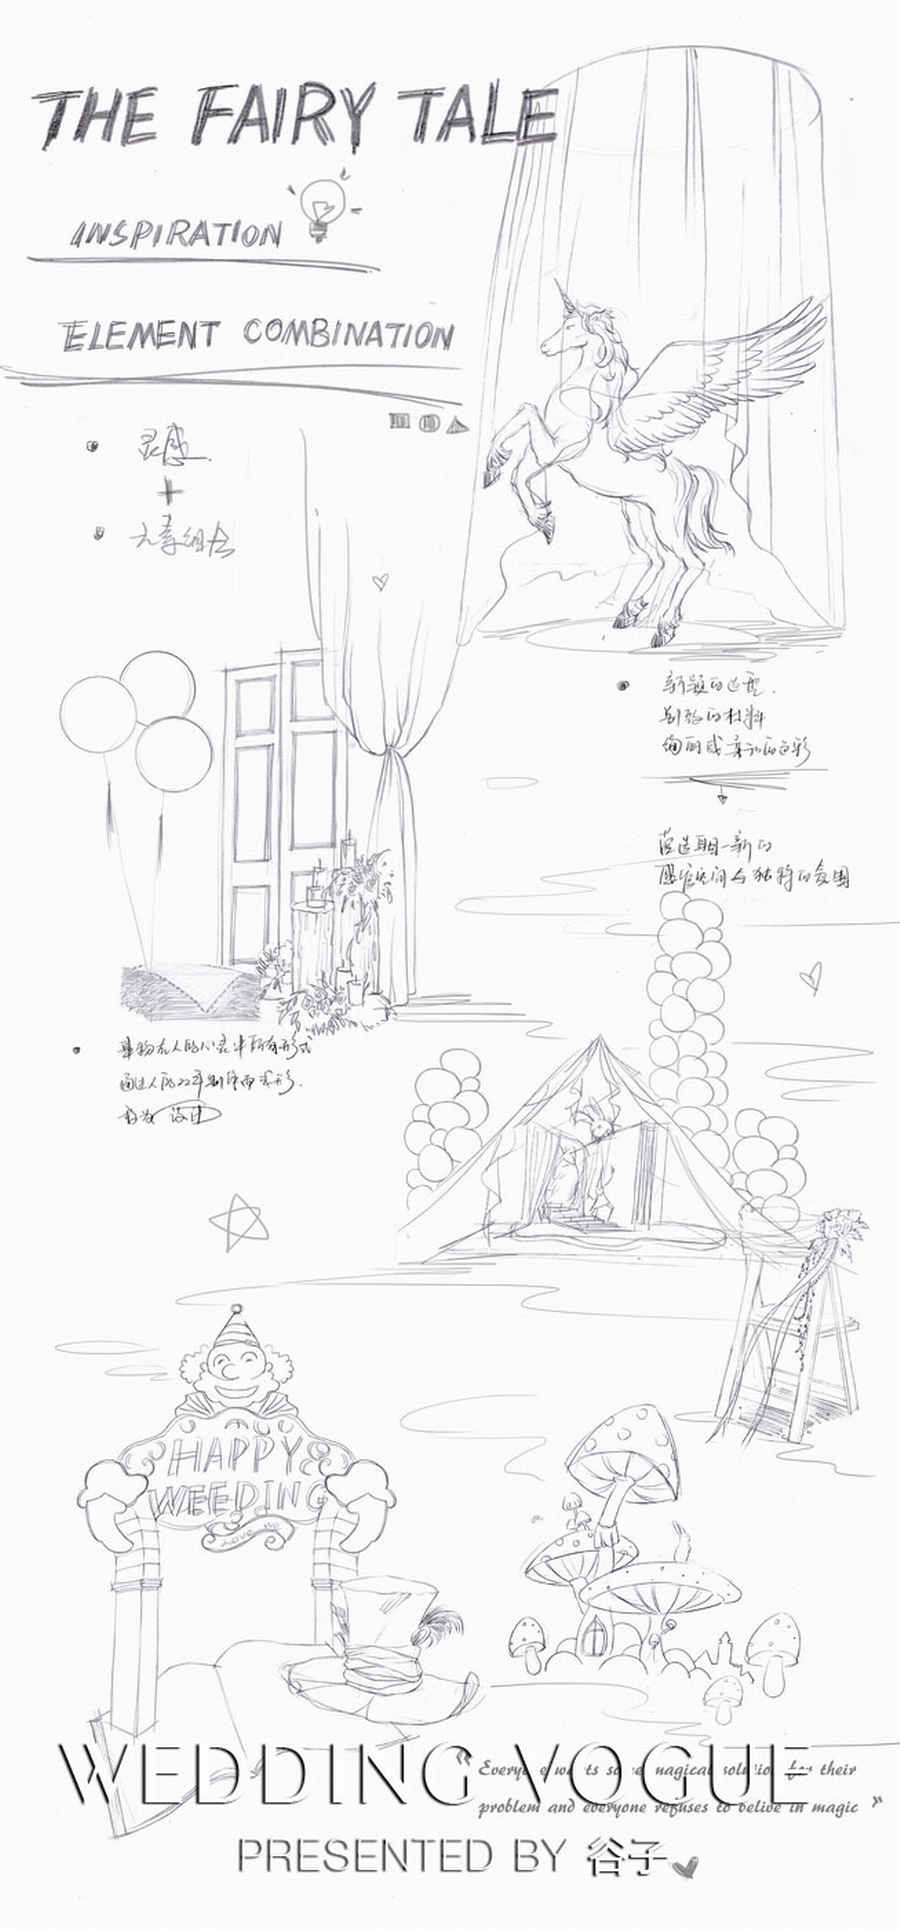 THE FAIRY TALE
INSPIRATION
ELEMENT COMBINATION
灵感
+
元素组合
新颖的造型.
别致的材料
绚丽或柔和的色彩
营造耳目一新的
感官空间与独特的氛围
事物在人的心灵中所有形式
通过人的
设计
HAPPY
WEEDING
LOVE ME
WEDDING VOGUE
“Everyone wants some magical solution for their
problem and everyone refuses to belive in magic”
PRESENTED BY 谷子